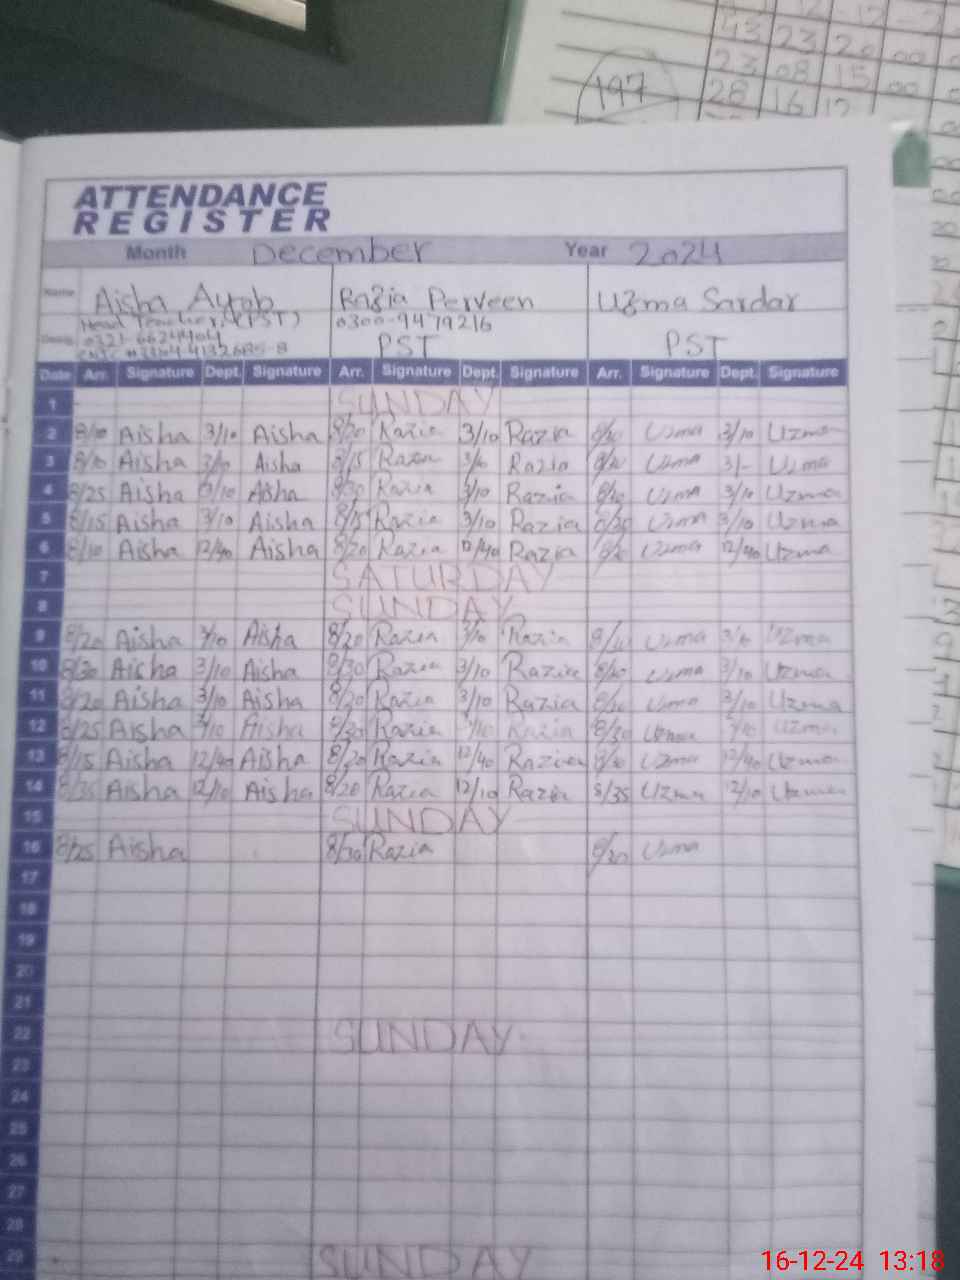 12 - 12 - 2
43 23 20 00
23 08 15 00
197 28 16 12
ATTENDANCE
REGISTER
Month December Year 2024
Name Aisha Ayob Razia Perveen Uzma Sardar
Head Teacher (PST) 0300-9479216
PST PST
Date Arr. Signature Dept. Signature Arr. Signature Dept. Signature Arr. Signature Dept. Signature
1 SUNDAY
2 8/10 Aisha 3/10 Aisha 8/20 Razia 3/10 Razia 8/30 Uzma 3/10 Uzma
3 8/10 Aisha 3/10 Aisha 8/15 Razia 3/10 Razia Uzma 3/- Uzma
4 8/25 Aisha 3/10 Aisha 8/30 Razia 3/10 Razia Uzma 3/10 Uzma
5 8/15 Aisha 3/10 Aisha 8/15 Razia 3/10 Razia Uzma 3/10 Uzma
6 8/10 Aisha 12/40 Aisha 8/20 Razia 12/40 Razia Uzma 12/40 Uzma
7 SATURDAY
8 SUNDAY
9 8/20 Aisha 3/10 Aisha 8/20 Razia 3/10 Razia Uzma 3/10 Uzma
10 8/30 Aisha 3/10 Aisha 8/30 Razia 3/10 Razia Uzma 3/10 Uzma
11 8/20 Aisha 3/10 Aisha 8/20 Razia 3/10 Razia Uzma 3/10 Uzma
12 8/25 Aisha 3/10 Aisha 8/30 Razia Razia 8/30 Uzma Uzma
13 8/15 Aisha 12/40 Aisha 8/20 Razia 12/40 Razia Uzma 12/40 Uzma
14 8/35 Aisha 12/10 Aisha 8/20 Razia 12/10 Razia 8/35 Uzma 12/10 Uzma
15 SUNDAY
16 8/25 Aisha 8/30 Razia 8/30 Uzma
17
18
19
20
21
22 SUNDAY
23
24
25
26
27
28
29 SUNDAY
16-12-24 13:18